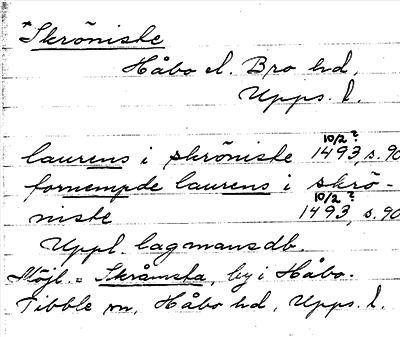 *Skröniske
Håbo el. Bro hd,
Upps. l.
10/2?
laurens i skröniske 1493, s. 90
fornempde laurens i skrö-
10/2?
niske 1493, s. 90
Uppl. lagmansdb.
Möjl. = Skrånsta, by i Håbo-
Tibble sn, Håbo hd, Upps. l.